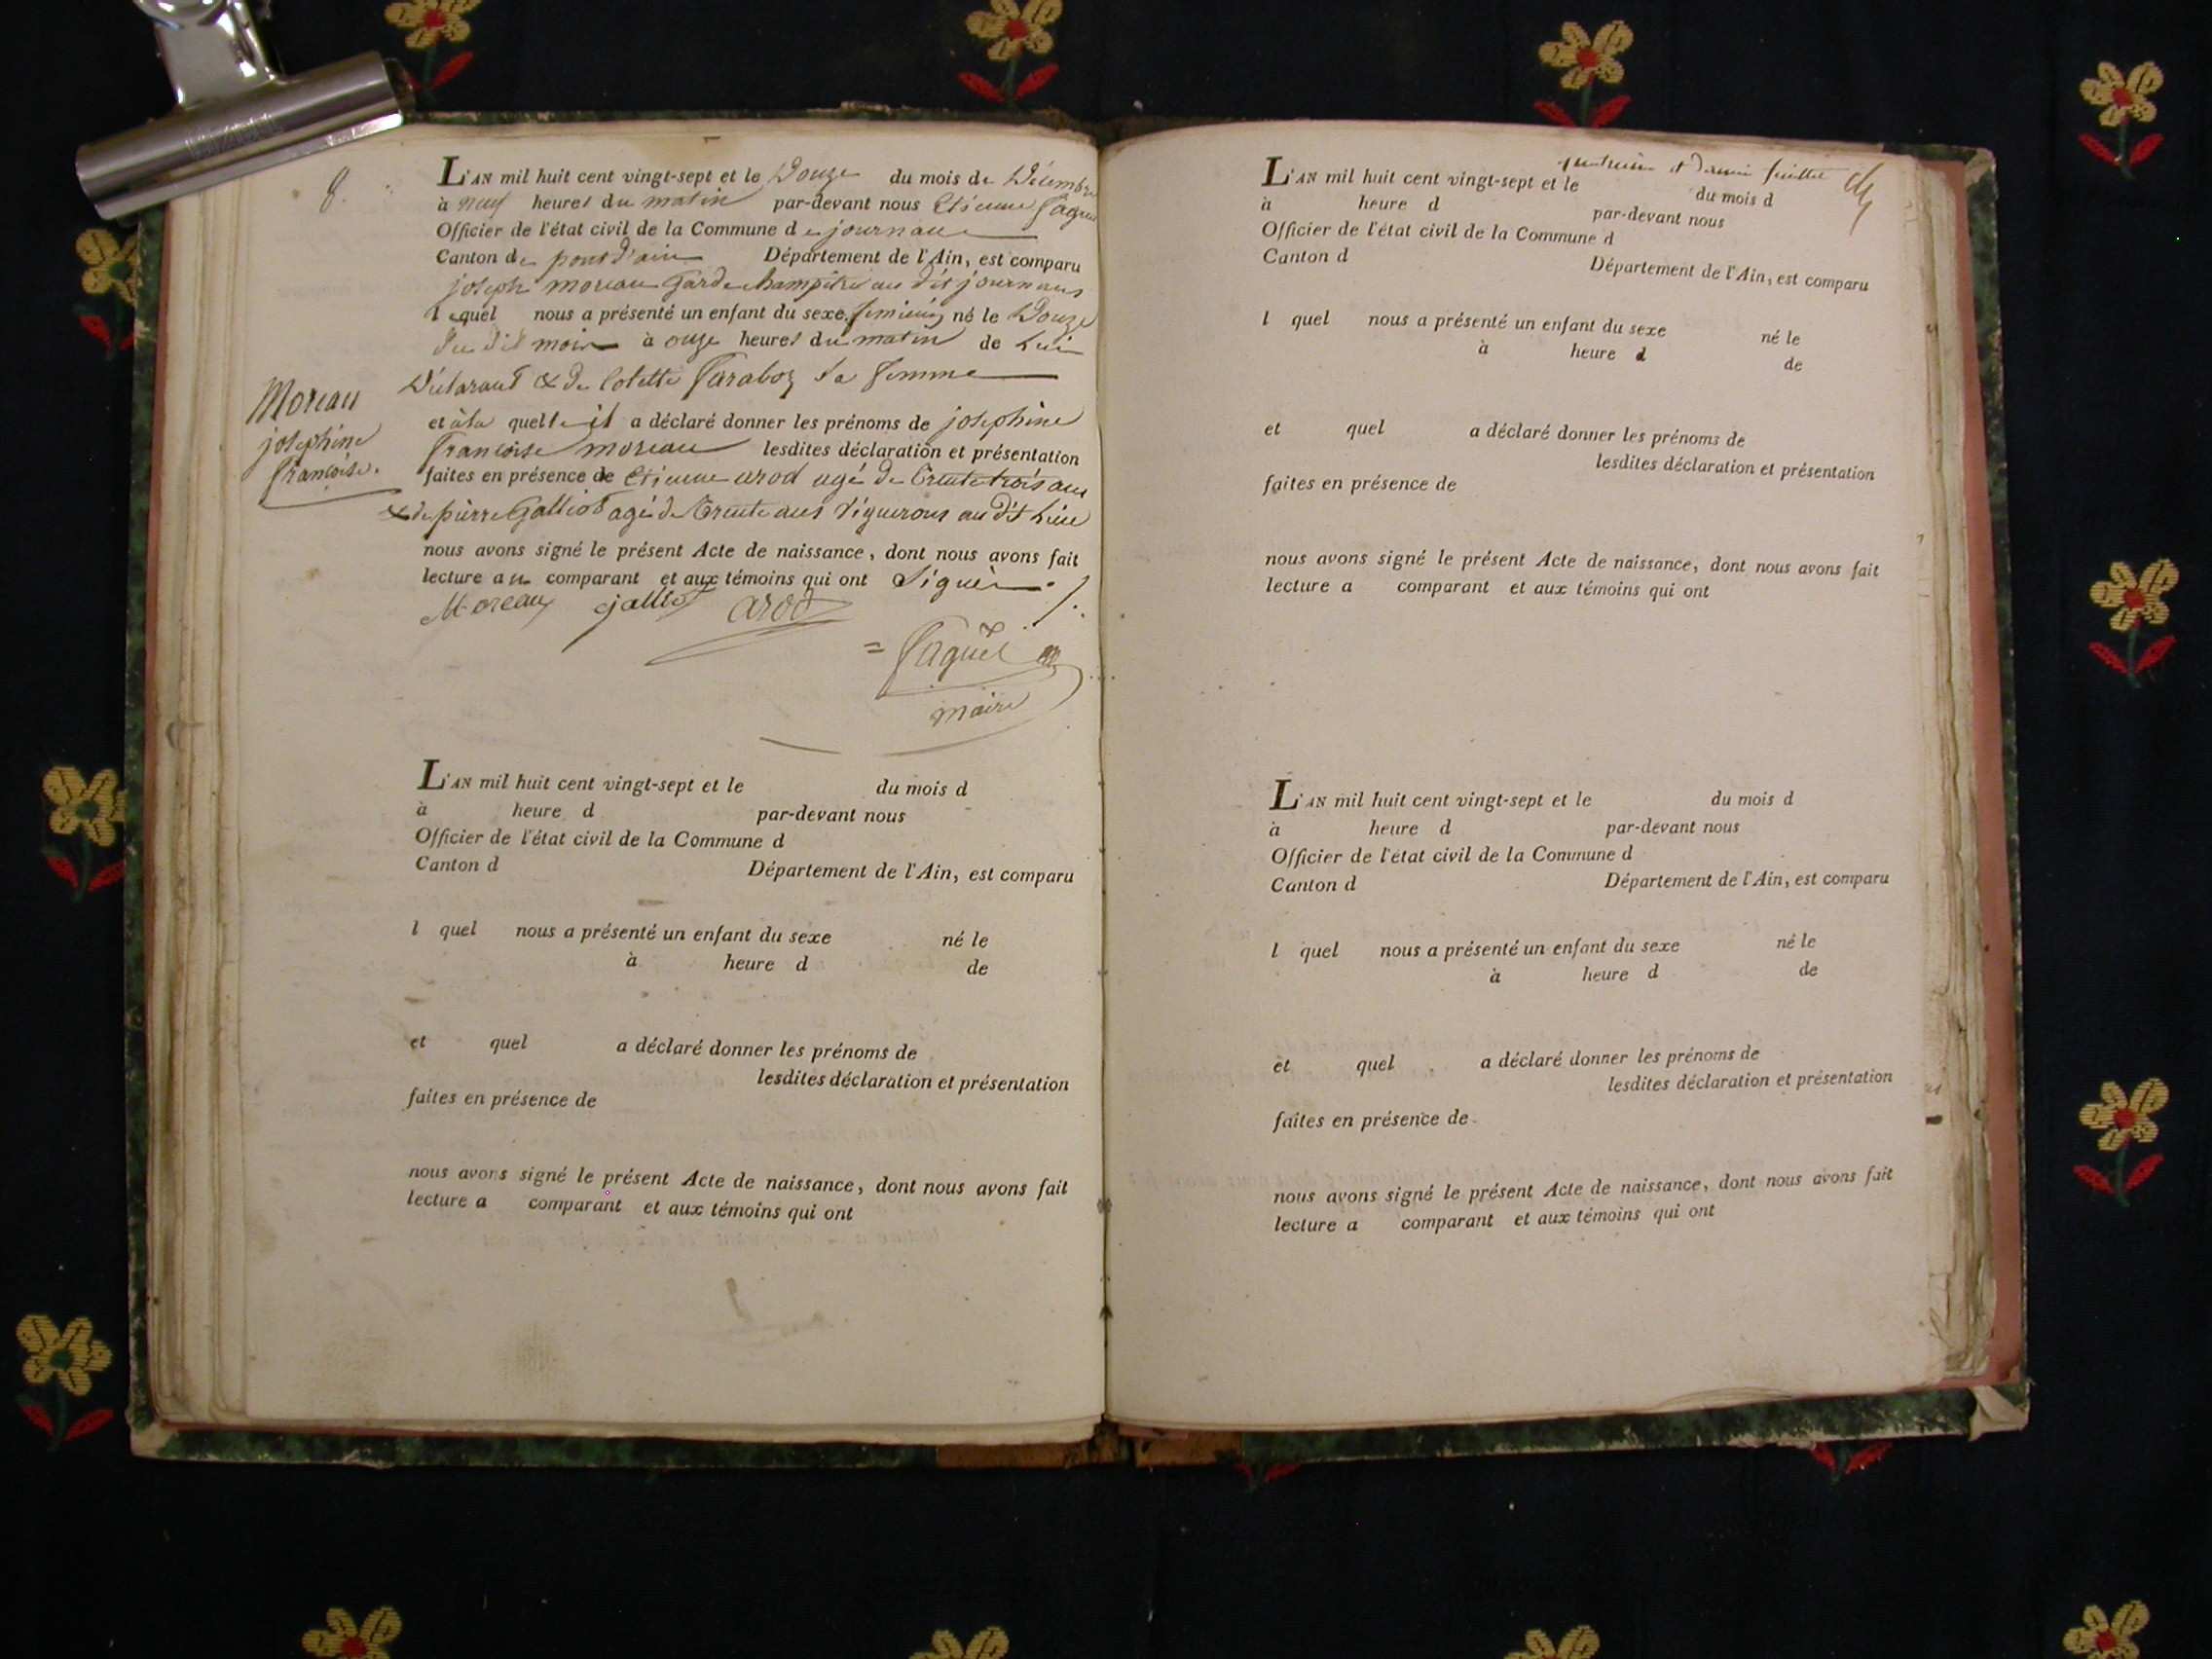 8.
L'AN mil huit cent vingt-sept et le Douze du mois de Décembre
à neuf heures du matin par-devant nous Etienne
Officier de l'état civil de la Commune de journans
Canton de pont d'ain Département de l'Ain, est comparu
joseph moreau garde champêtre au dit journans
lequel nous a présenté un enfant du sexe feminin né le Douze
du dit mois à onze heures du matin de lui
Déclarant & de Colette sa femme
Moreau
josephine
françoise.
et à la quelle il a déclaré donner les prénoms de josephine
françoise moreau lesdites déclaration et présentation
faites en présence de Etienne arod agé de trente trois ans
& de pierre Galliot agé de trente ans vignerons au dit lieu
nous avons signé le présent Acte de naissance, dont nous avons fait
lecture au comparant et aux témoins qui ont signés ./.
Moreau galliot arod
maire
L'AN mil huit cent vingt-sept et le du mois d
à heure d par-devant nous
Officier de l'état civil de la Commune d
Canton d Département de l'Ain, est comparu
l quel nous a présenté un enfant du sexe né le
à heure d de
et quel a déclaré donner les prénoms de
lesdites déclaration et présentation
faites en présence de
nous avons signé le présent Acte de naissance, dont nous avons fait
lecture a comparant et aux témoins qui ont
feuillet
L'AN mil huit cent vingt-sept et le du mois d
à heure d par-devant nous
Officier de l'état civil de la Commune d
Canton d Département de l'Ain, est comparu
l quel nous a présenté un enfant du sexe né le
à heure d de
et quel a déclaré donner les prénoms de
lesdites déclaration et présentation
faites en présence de
nous avons signé le présent Acte de naissance, dont nous avons fait
lecture a comparant et aux témoins qui ont
L'AN mil huit cent vingt-sept et le du mois d
à heure d par-devant nous
Officier de l'état civil de la Commune d
Canton d Département de l'Ain, est comparu
l quel nous a présenté un enfant du sexe né le
à heure d de
et quel a déclaré donner les prénoms de
lesdites déclaration et présentation
faites en présence de
nous avons signé le présent Acte de naissance, dont nous avons fait
lecture a comparant et aux témoins qui ont